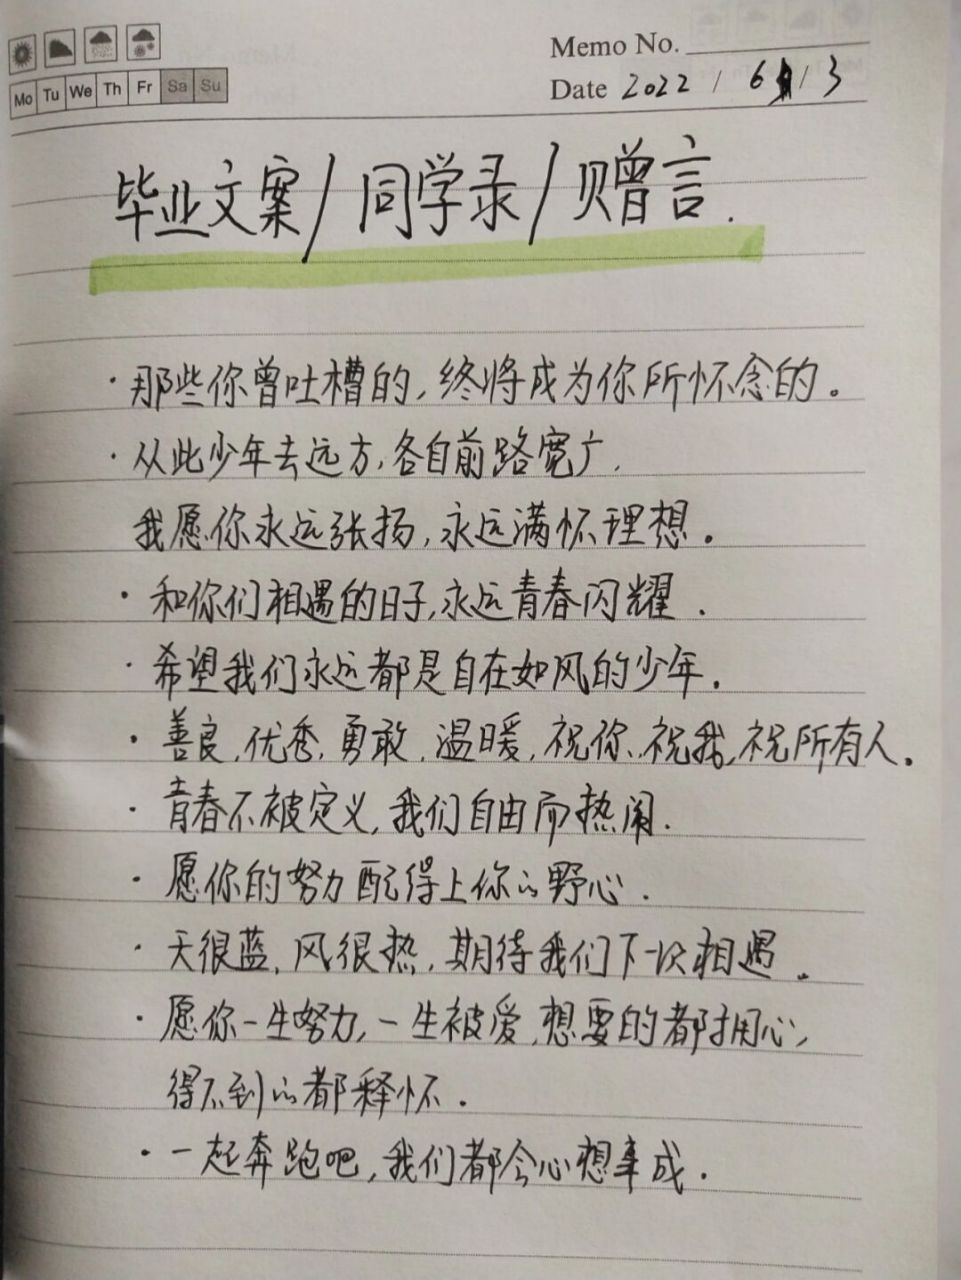 Memo No.
Mo Tu We Th Fr Sa Su
Date 2022 / 6 / 3
毕业文案/同学录/赠言.
·那些你曾吐槽的,终将成为你所怀念的。
·从此少年去远方,各自前路宽广,
我愿你永远张扬,永远满怀理想。
·和你们相遇的日子,永远青春闪耀.
·希望我们永远都是自在如风的少年.
·善良,优秀,勇敢,温暖,祝你,祝我,祝所有人.
·青春不被定义,我们自由而热闹.
·愿你的努力配得上你的野心.
·天很蓝,风很热,期待我们下一次相遇.
·愿你一生努力,一生被爱,想要的都拥心,
得不到的都释怀.
·一起奔跑吧,我们都会心想事成.